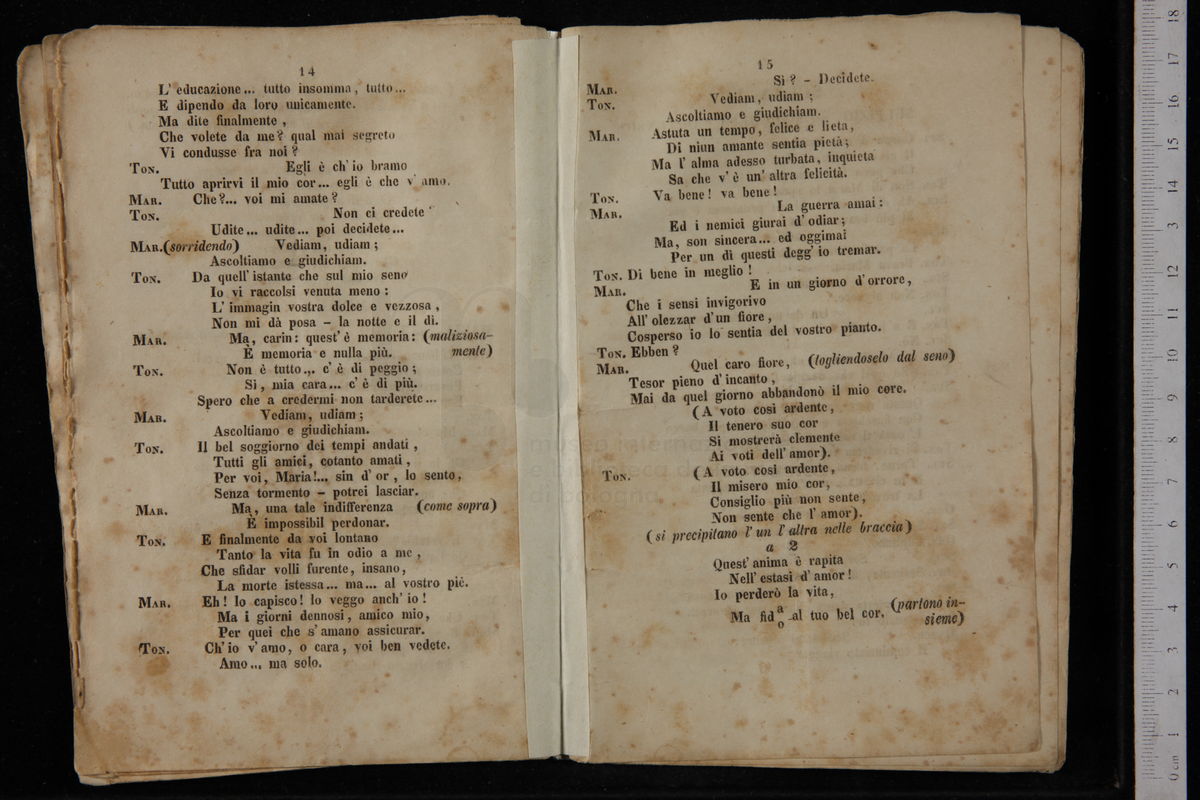 14
L' educazione... tutto insomma, tutto...
E dipendo da loro unicamente.
Ma dite finalmente ,
Che volete da me? qual mai segreto
Vi condusse fra noi?
Ton. Egli è ch' io bramo
Tutto aprirvi il mio cor... egli è che v' amo.
Mar. Che?... voi mi amate?
Ton. Non ci credete
Udite... udite... poi decidete...
Mar.(sorridendo) Vediam, udiam ;
Ascoltiamo e giudichiam.
Ton. Da quell' istante che sul mio seno
Io vi raccolsi venuta meno :
L' immagin vostra dolce e vezzosa ,
Non mi dà posa – la notte e il dì.
Mar. Ma, carin: quest' è memoria: (maliziosa-
È memoria e nulla più. mente)
Ton. Non è tutto... c' è di peggio ;
Si , mia cara... c' è di più.
Spero che a credermi non tarderete...
Mar. Vediam, udiam ;
Ascoltiamo e giudichiam.
Ton. Il bel soggiorno dei tempi andati ,
Tutti gli amici, cotanto amati ,
Per voi, Maria!... sin d' or , lo sento,
Senza tormento – potrei lasciar.
Mar. Ma, una tale indifferenza (come sopra)
È impossibil perdonar.
Ton. E finalmente da voi lontano
Tanto la vita fu in odio a me ,
Che sfidar volli furente, insano,
La morte istessa... ma... al vostro piè.
Mar. Eh! lo capisco! lo veggo anch' io !
Ma i giorni dennosi, amico mio,
Per quei che s' amano assicurar.
Ton. Ch' io v' amo, o cara, voi ben vedete.
Amo... ma solo.
15
Mar. Si ? – Decidete.
Ton. Vediam, udiam ;
Ascoltiamo e giudichiam.
Mar. Astuta un tempo, felice e lieta,
Di niun amante sentia pietà;
Ma l' alma adesso turbata, inquieta
Sa che v' è un' altra felicità.
Ton. Va bene! va bene!
Mar. La guerra amai :
Ed i nemici giurai d' odiar;
Ma, son sincera... ed oggimai
Per un di questi degg' io tremar.
Ton. Di bene in meglio !
Mar. E in un giorno d' orrore,
Che i sensi invigorivo
All' olezzar d' un fiore ,
Cosperso io lo sentia del vostro pianto.
Ton. Ebben ?
Mar. Quel caro fiore, (togliendoselo dal seno)
Tesor pieno d' incanto ,
Mai da quel giorno abbandonò il mio core.
(A voto così ardente ,
Il tenero suo cor
Si mostrerà clemente
Ai voti dell' amor).
Ton. (A voto così ardente,
Il misero mio cor,
Consiglio più non sente,
Non sente che l' amor).
(si precipitano l' un l' altra nelle braccia)
a 2
Quest' anima è rapita
Nell' estasi d' amor !
Io perderò la vita,
Ma fid a/o al tuo bel cor. (partono in-
sieme)